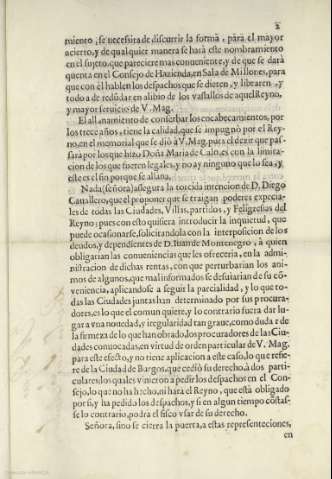 2
miento, se necessita de discurrir la forma, para el mayor
acierto, y de qualquier manera se hará este nombramiento
en el sujeto, que pareciere mas conueniente, y de que se dará
quenta en el Consejo de Hazienda, en Sala de Millones, para
que con èl hablen los despachos que se dieren, y libraren, y
todo a de redũdar en aliuio de los vassallos de aquel Reyno,
y mayor seruicio de V. Mag.
El allanamiento de conseruar los encabeçamientos, por
los treze años, tiene la calidad, que se impugnò por el Rey-
no, en el memorial que se diò à V. Mag. pues el dezir que pas-
sarà por los que hizo Doña Maria de Calo, es con la limita-
cion de los que fueren legales, y no ay ninguno que lo sea, y
este es el fin porque se allana.
Nada (señora) assegura la torcida intencion de D. Diego
Cauallero, que el proponer que se traigan poderes especia-
les de todas las Ciudades, Villas, partidos, y Feligresias del
Reyno; pues con esto quisiera introducir la inquietud, que
puede ocasionarse, solicitandola con la interposicion de los
deudos, y dependientes de D. Iuan de Montenegro, à quien
obligarian las conueniencias que les ofreceria, en la admi-
nistracion de dichas rentas, con que perturbarian los ani-
mos de algunos, que mal informados se desuiarian de su cõ-
veniencia, aplicandose a seguir la parcialidad, y lo que to-
das las Ciudades juntas han determinado por sus procura-
dores, es lo que el comun quiere, y lo contrario fuera dar lu-
gar a vna nouedad, y irregularidad tan graue, como dudar de
la firmeza de lo que han obrado, los procuradores de las Ciu-
dades conuocadas, en virtud de orden particular de V. Mag.
para este efecto, y no tiene aplicacion a este caso, lo que refie-
re de la Ciudad de Burgos, que cediò su derecho, à dos parti-
culares, los quales vinieron a pedir los despachos en el Con-
sejo, lo que no ha hecho, ni hará el Reyno, que está obligado
por si, y ha pedido los despachos, y si en algun tiempo cõstas-
se lo contrario, podrá el fisco vsar de su derecho.
Señora, sino se cierra la puerta, a estas representeciones,
en